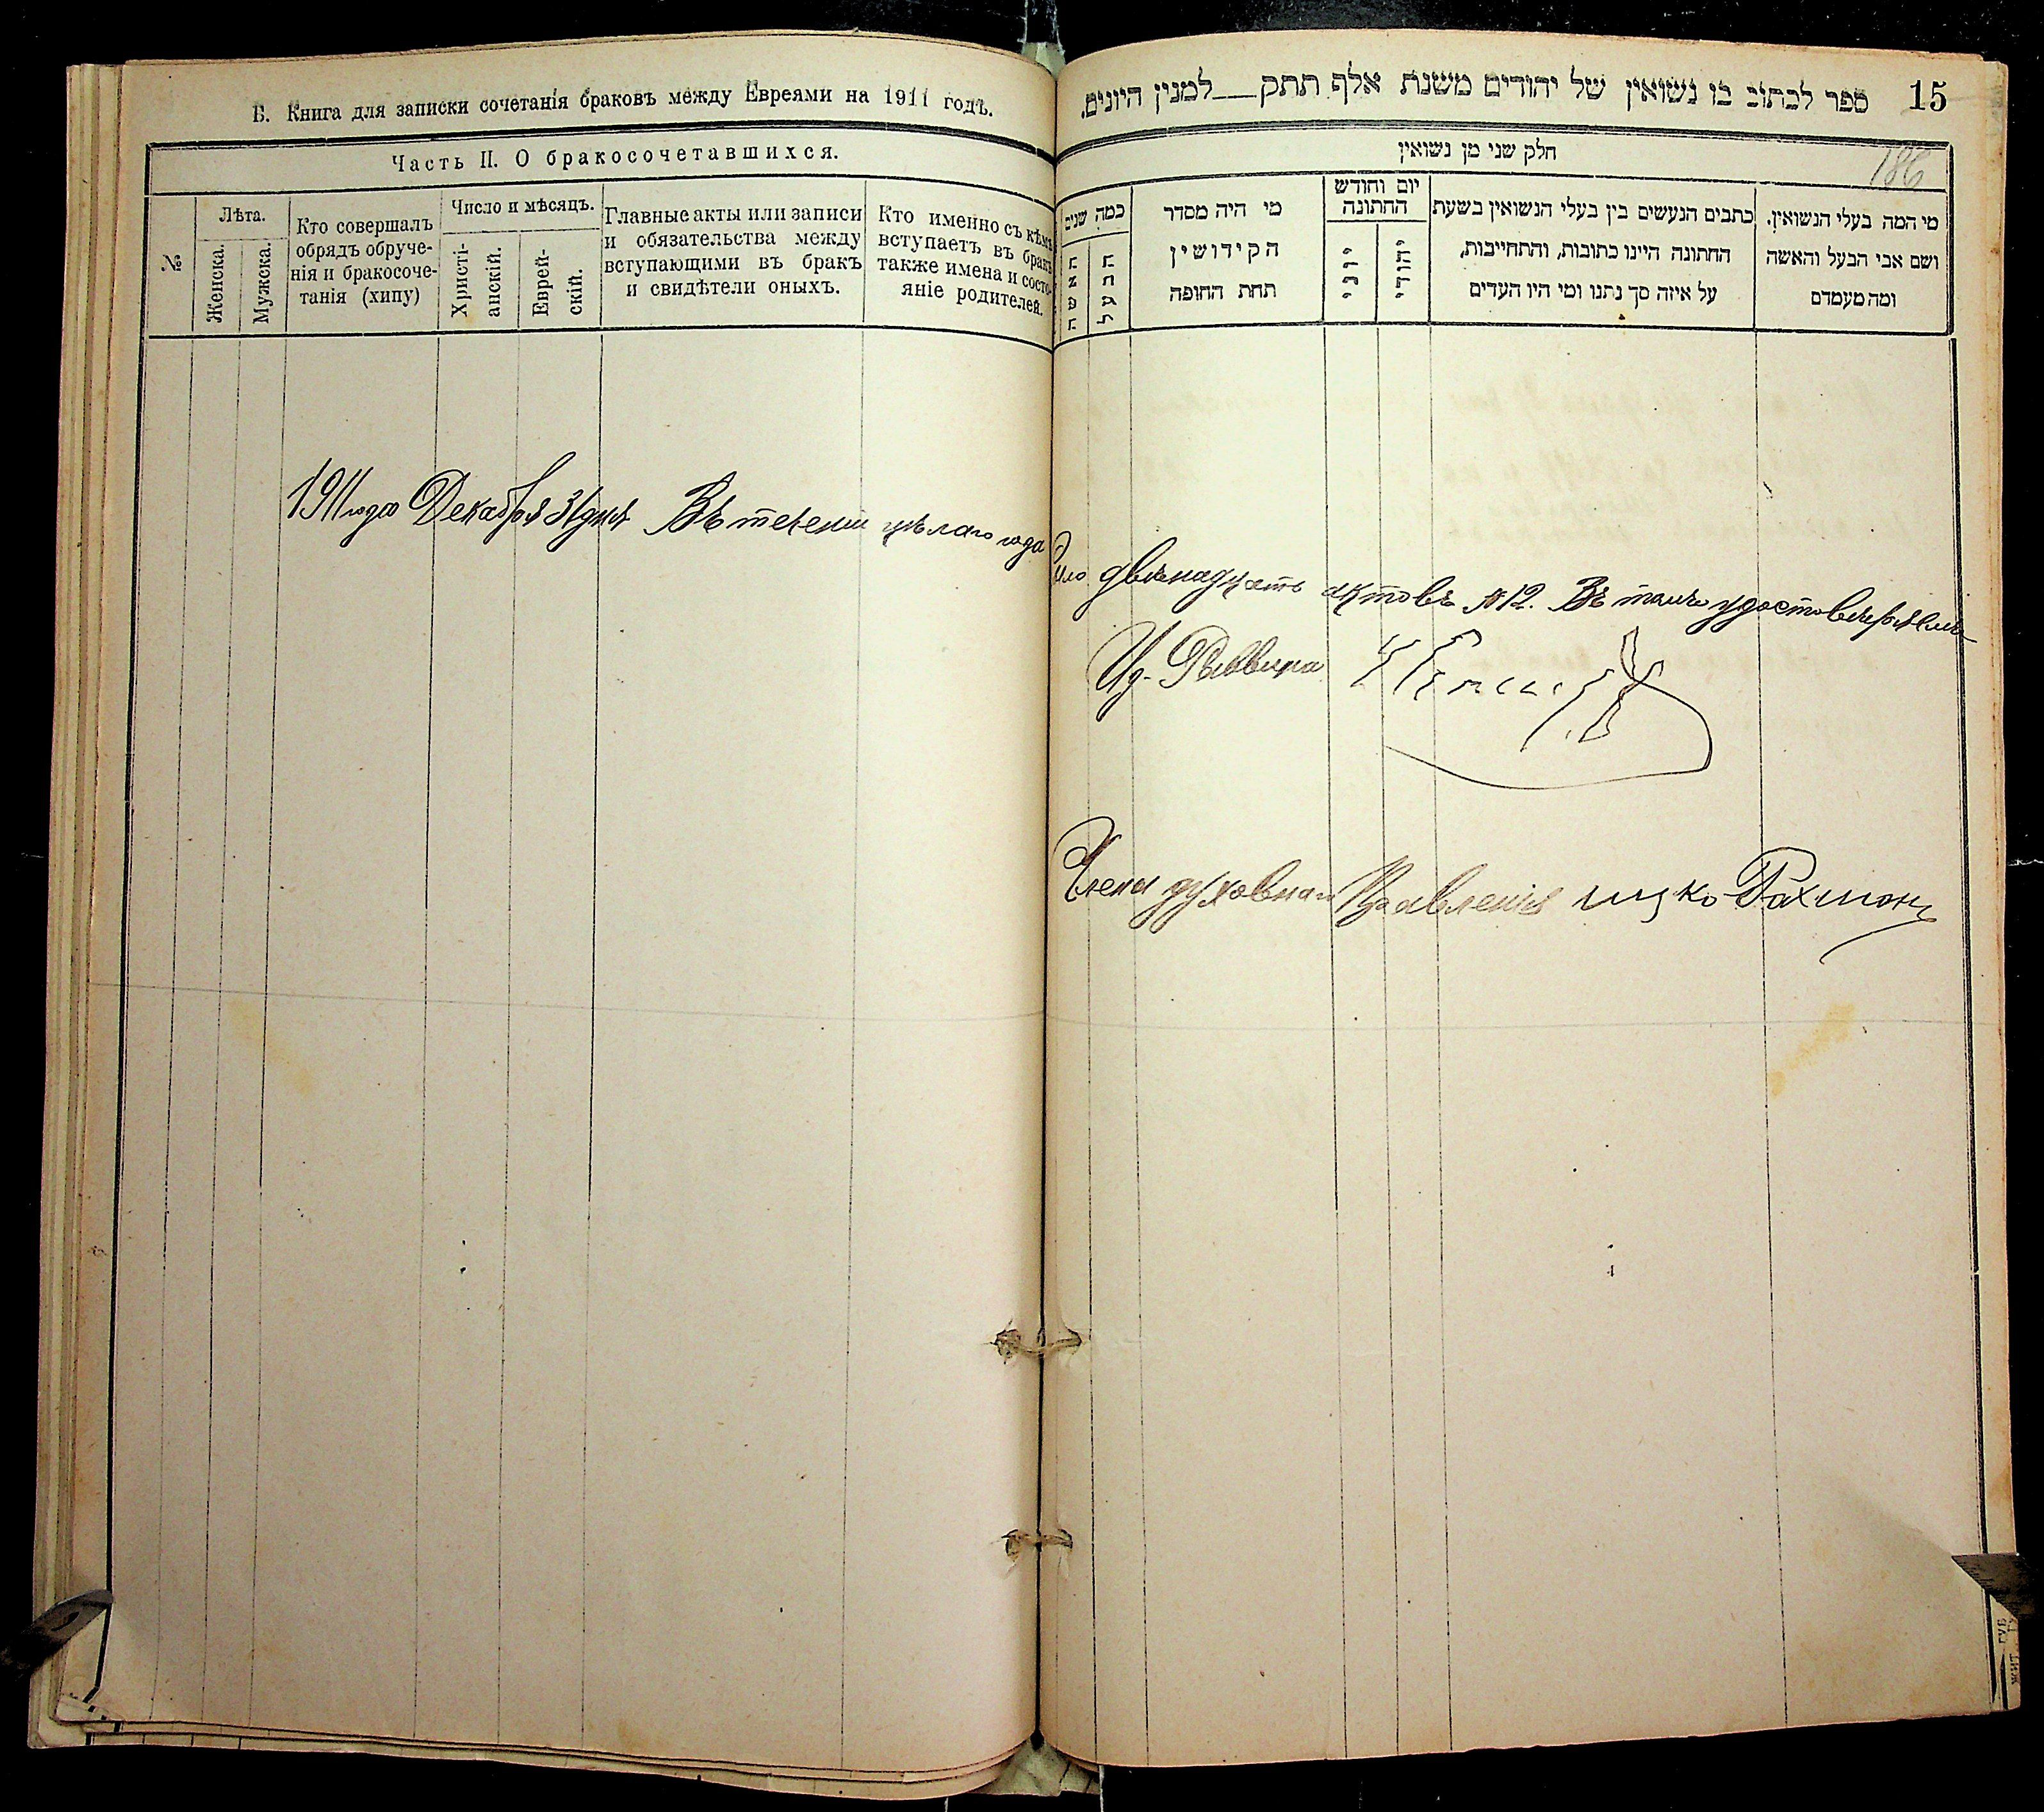 Б. Книга для записки сочетанія браковъ между Евреями на 1911 годъ.
Часть II. О бракосочетавшихся.
№
Лѣта.
Женска.
Мужска.
Кто совершалъ
обрядъ обруче-
нія и бракосоче-
танія (хипу)
Число и мѣсяцъ.
Христі-
анскій.
Еврей-
скій.
Главные акты или записи
и обязательства между
вступающими въ бракъ
и свидѣтели оныхъ.
Кто именно съ кѣмъ
вступаетъ въ бракъ
также имена и состо-
яніе родителей.
15
ספר לכתוב בו נשואין של יהודים משנת אלף תתק__למנין היונים.
186
חלק שני מן נשואין
כמה שנים
האשה
הבעל
מי היה מסדר
הקידושין
תחת החופה
יום וחודש
החתונה
יוני
יהודי
כתבים הנעשים בין בעלי הנשואין בשעת
החתונה היינו כתובות, והתחייבות,
על איזה סך נתנו ומי היו העדים
מי המה בעלי הנשואין.
ושם אבי הבעל והאשה
ומה מעמדם
1911 года Декабря 31 дня Въ теченіи цѣлаго года
было двѣнадцать актовъ №12. Въ томъ удостовѣряемъ
Из. Раввина
Члены духовнаго Правленія ицко Рахман